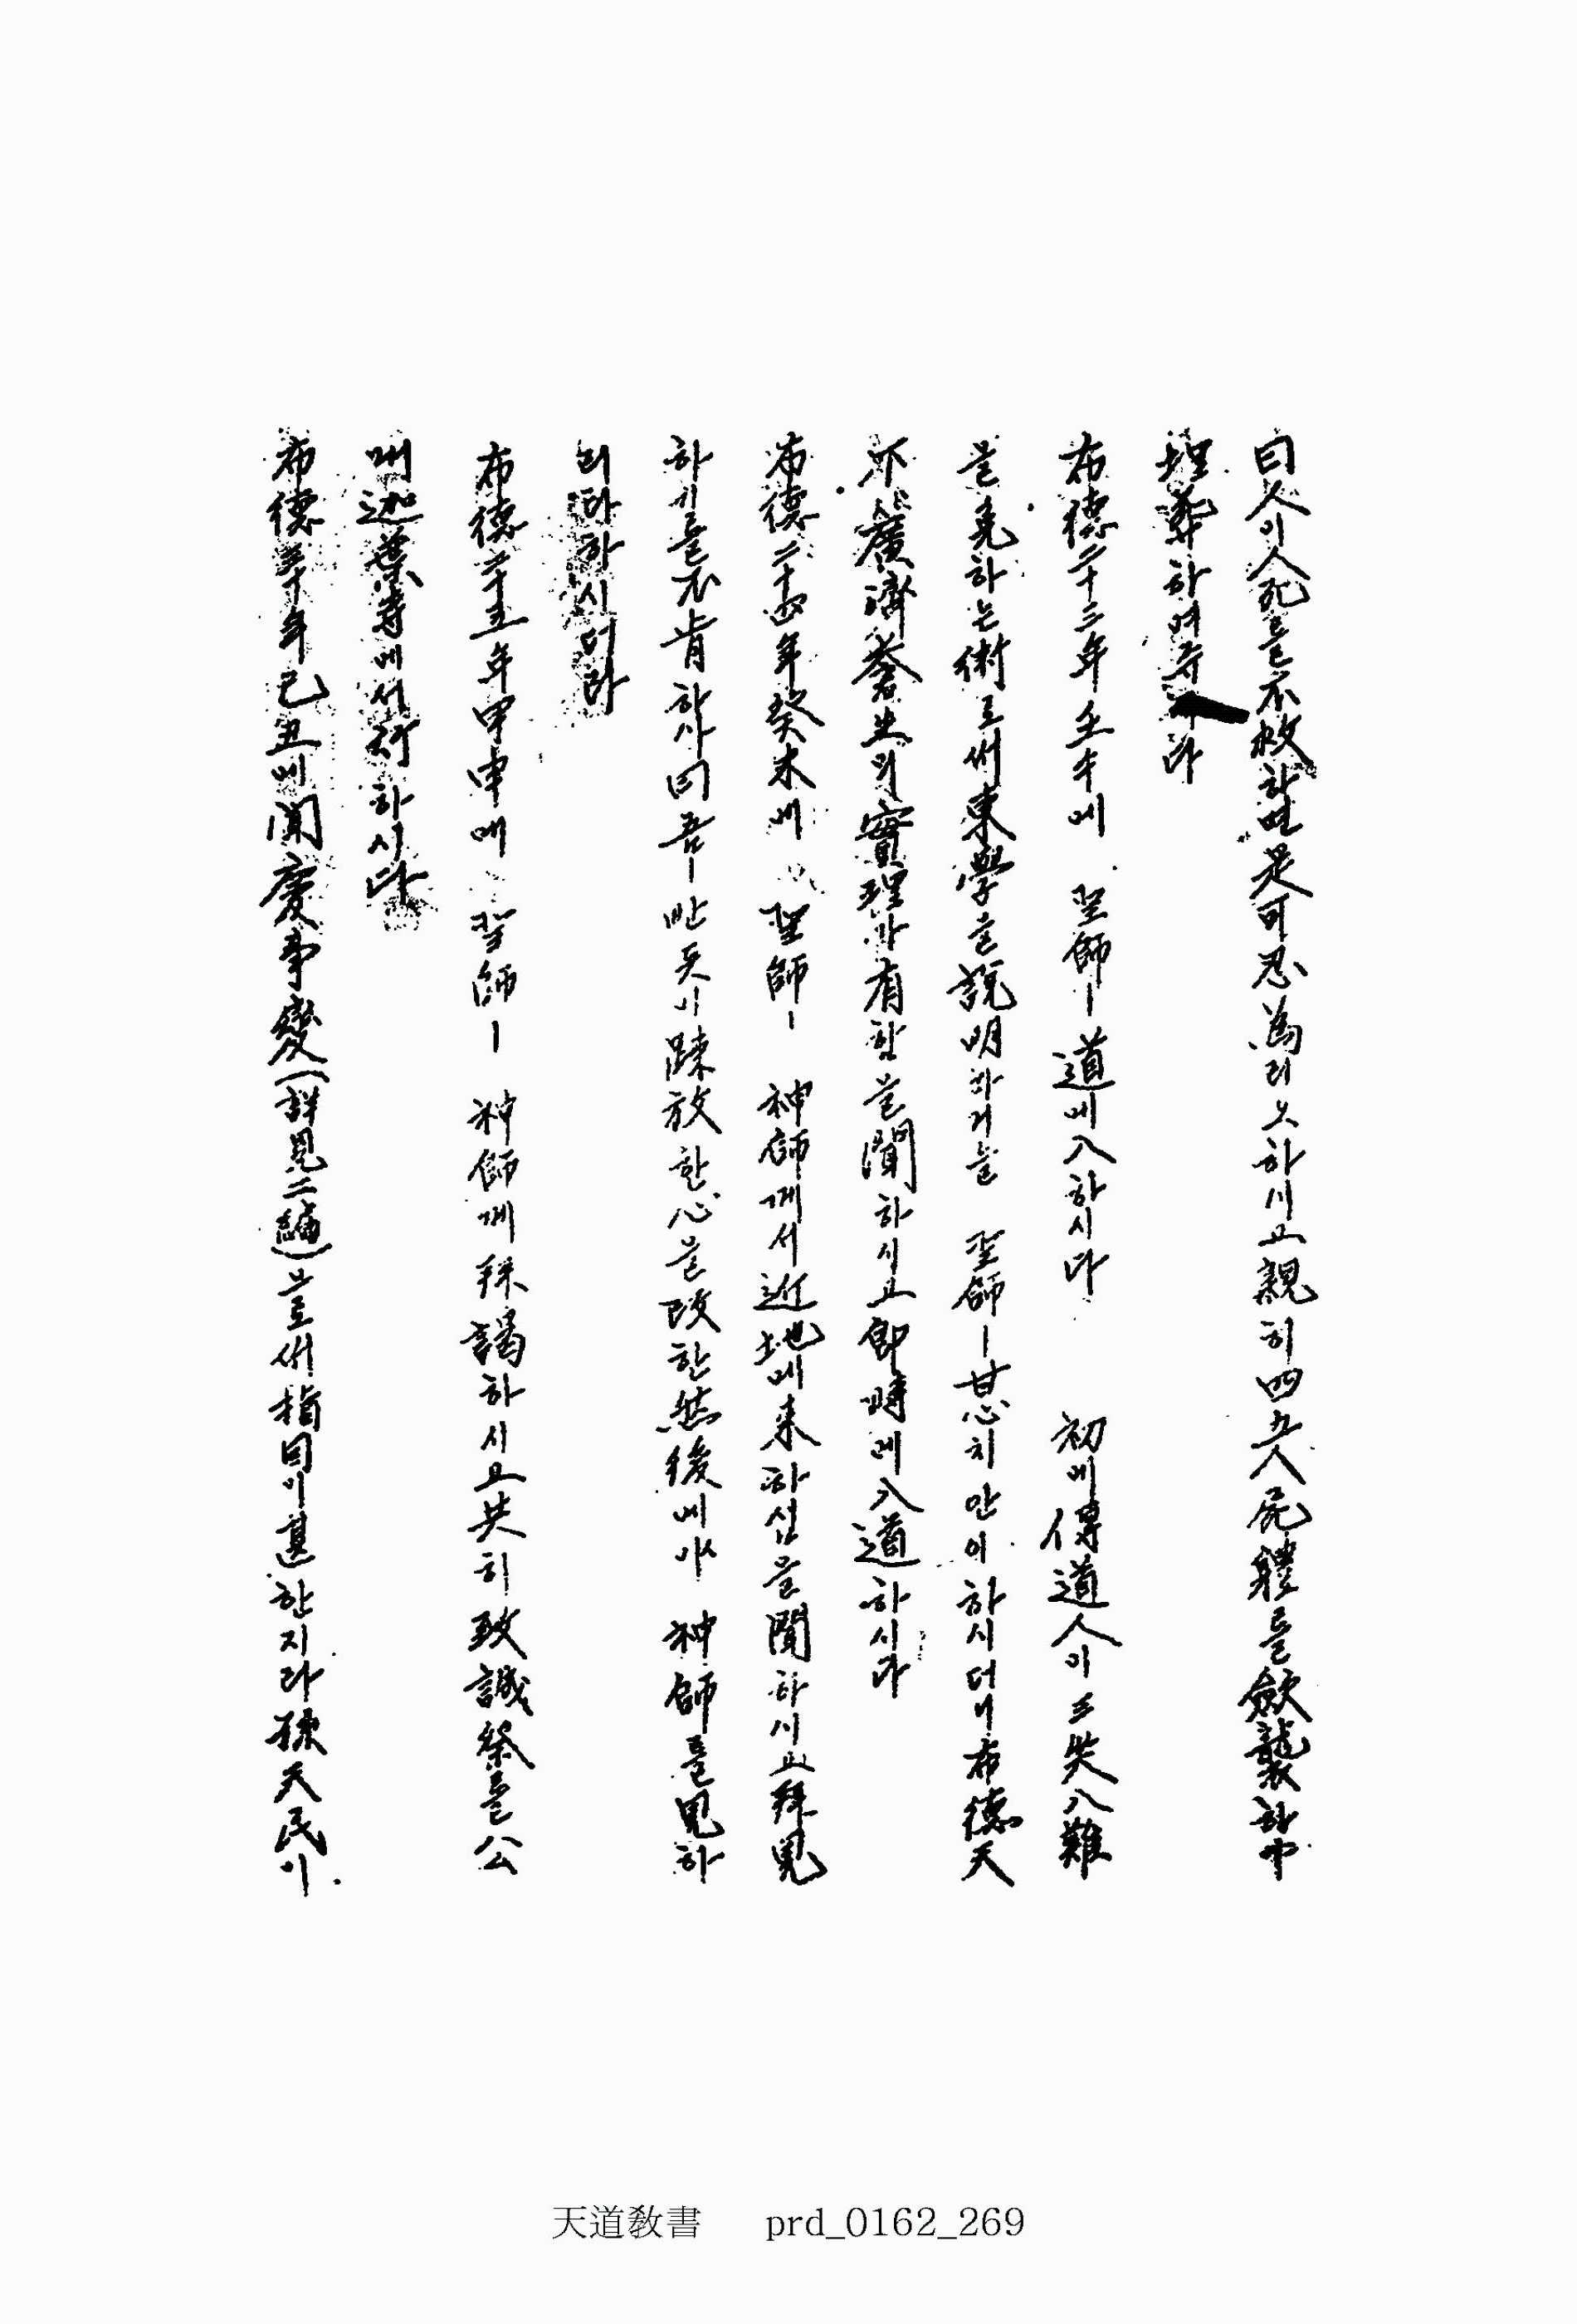 曰人이人死를不救하면是可忍爲리오하시고親히四五人屍軆를斂襲하야
埋葬하여주 라
布德二十三年壬午에 聖師ㅣ道에入하시다 初에傳道人이三災八難
을免하는術로써東學을說明하거늘 聖師ㅣ甘心치안이하시더니布德天
下廣濟蒼生의實理가有함을聞하시고卽時에入道하시다
布德二十四年癸未에 聖師ㅣ 神師께서近地에來하심을聞하시고拜見
하기를不肯하사曰吾ㅣ반듯이踈放한心을改한然後에야 神師를見하
리라하시더라
布德二十五年甲申에 聖師ㅣ 神師께拜謁하시고共히致誠祭를公
州迦葉寺에서行하시다
布德三十年己丑에聞慶事變(詳見二編)으로써指目이甚한지라孫天民이
天道敎書 prd_0162_269